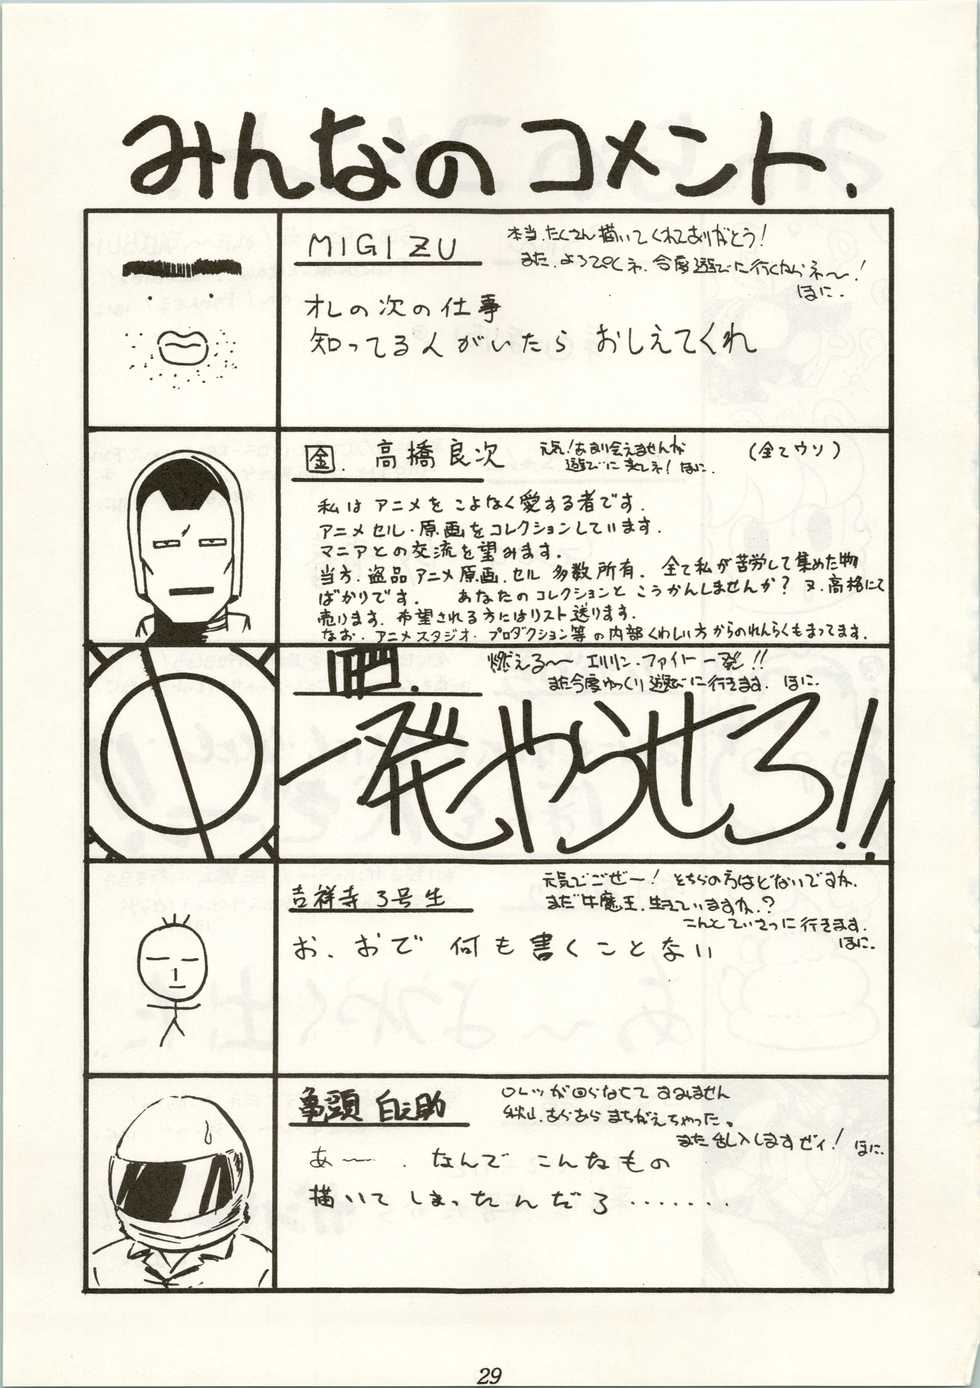 みんなのコメント.
MIGIZU
本当、たくさん描いてくれてありがとう!
また、よろぴくネ、今度遊びに行くからネ〜!
ほに.
オレの次の仕事
知ってる人がいたら おしえてくれ
金. 高橋良次
元気!あまり会えませんが
遊びに来しネ! ほに.
(全てウソ)
私は アニメを こよなく愛する者です.
アニメセル・原画をコレクションしています.
マニアとの交流を望みます.
当方、盗品 アニメ原画、セル 多数所有. 全て私が苦労して集めた物
ばかりです. あなたのコレクションと こうかんしませんか? 又、高格にて
売ります. 希望される方にはリスト送ります.
なお、アニメスタジオ・プロダクション等の内部くわしい方からのれんらくもまってます.
燃える〜 エルリン・ファイヤー 一発!!
また今度ゆっくり遊びに行きます. ほに.
一発やらせろ!!
吉祥寺3号生
元気でごぜ〜! そちらの方はどないですか.
まだ牛魔王、生きていますか.?
こんど ていさつに行きます.
ほに.
お、おで 何も書くことない
亀頭 白之助
ロレツが回らなくて すみません
秋山、あらあら まちがえちゃった。
また乱入しますぜィ! ほに.
あ〜. なんで こんなもの
描いて しまったんだろ.......
29